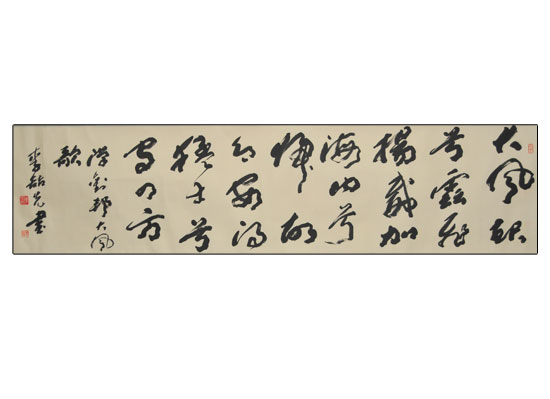 大風起
兮雲飛
揚威加
海内兮
歸故
鄉安得
猛士兮
守四方
漢劉邦大風
歌
李 書